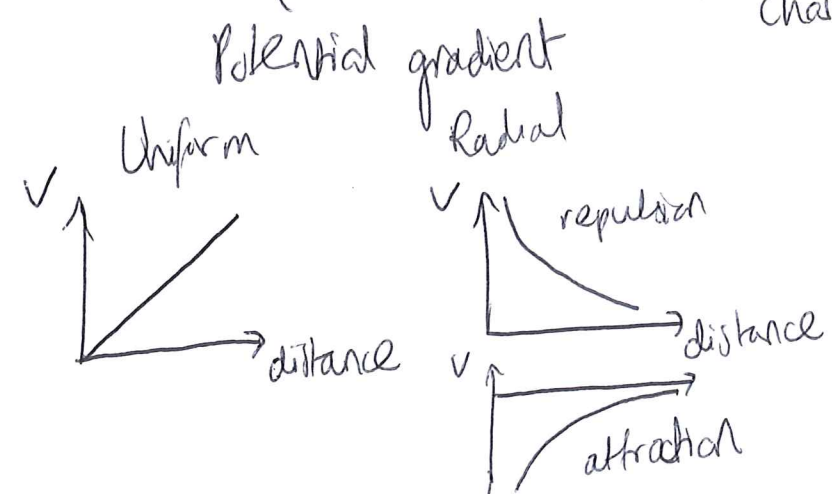 Char
Potential gradient
Uniform
Radial
V
distance
V
repulsion
distance
V
attraction